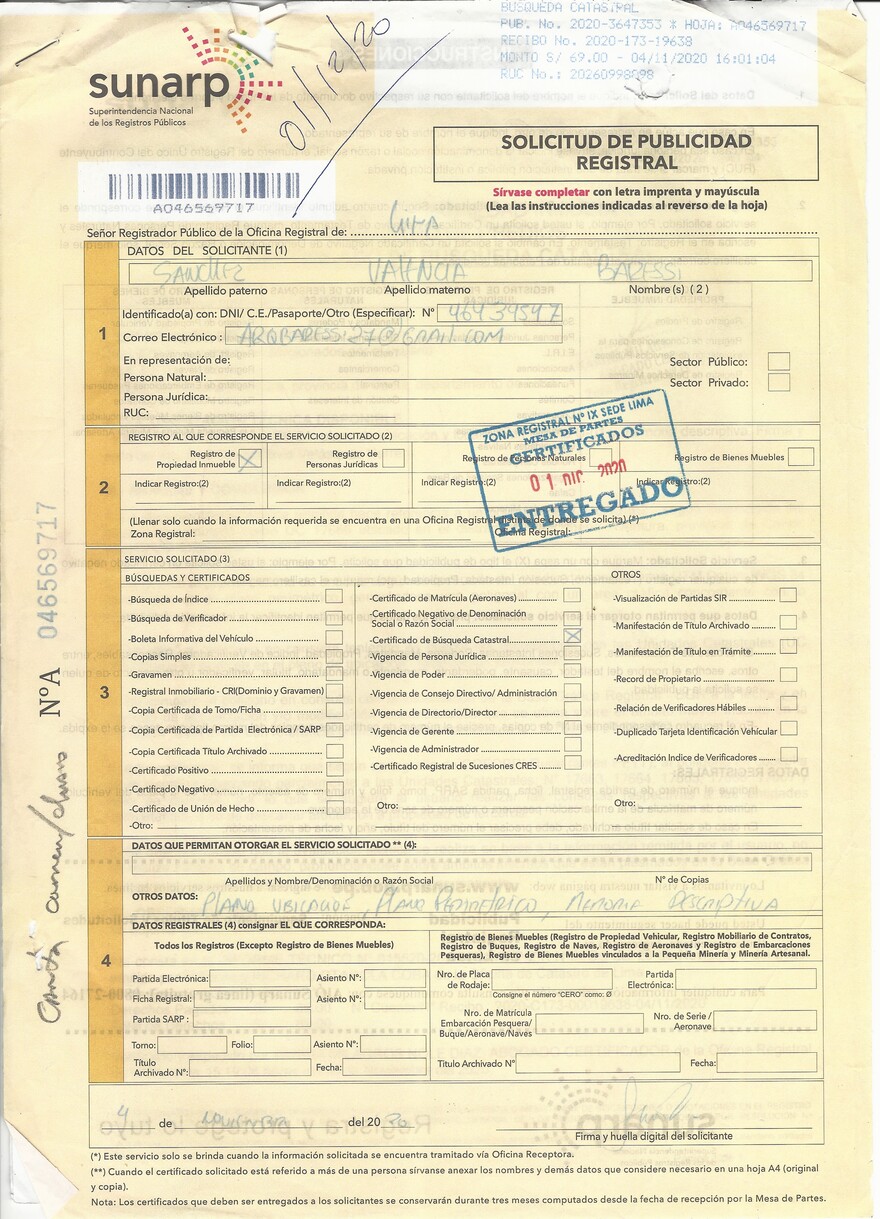 BUSQUEDA CATASTRAL
PUB. No. 2020-3647353 * HOJA: A046569717
RECIBO No. 2020-173-19638
MONTO S/ 69.00 - 04/11/2020 16:01:04
RUC No.: 20260998898
01/12/20
sunarp
Superintendencia Nacional
de los Registros Públicos
A046569717
SOLICITUD DE PUBLICIDAD
REGISTRAL
Sírvase completar con letra imprenta y mayúscula
(Lea las instrucciones indicadas al reverso de la hoja)
Señor Registrador Público de la Oficina Registral de: LIMA
DATOS DEL SOLICITANTE (1)
SANCHEZ VALENCIA BARESSI
Apellido paterno Apellido materno Nombre(s) (2)
1
Identificado(a) con: DNI/ C.E./Pasaporte/Otro (Especificar): N° 46434547
Correo Electrónico : ARQBARESSI.27@GMAIL.COM
En representación de:
Sector Público:
Persona Natural:
Sector Privado:
Persona Jurídica:
RUC:
REGISTRO AL QUE CORRESPONDE EL SERVICIO SOLICITADO (2)
2
Registro de Propiedad Inmueble X Registro de Personas Jurídicas Registro de Personas Naturales Registro de Bienes Muebles
Indicar Registro:(2) Indicar Registro:(2) Indicar Registro:(2) Indicar Registro:(2)
(Llenar solo cuando la información requerida se encuentra en una Oficina Registral distinta de donde se solicita) (*)
Zona Registral: Oficina Registral:
ZONA REGISTRAL N° IX SEDE LIMA
MESA DE PARTES
CERTIFICADOS
01 DIC. 2020
ENTREGADO
N°A 046569717
SERVICIO SOLICITADO (3)
3
BÚSQUEDAS Y CERTIFICADOS
-Búsqueda de Índice
-Búsqueda de Verificador
-Boleta Informativa del Vehículo
-Copias Simples
-Gravamen
-Registral Inmobiliario - CRI(Dominio y Gravamen)
-Copia Certificada de Tomo/Ficha
-Copia Certificada de Partida Electrónica / SARP
-Copia Certificada Título Archivado
-Certificado Positivo
-Certificado Negativo
-Certificado de Unión de Hecho
-Otro:
-Certificado de Matrícula (Aeronaves)
-Certificado Negativo de Denominación
Social o Razón Social
-Certificado de Búsqueda Catastral X
-Vigencia de Persona Jurídica
-Vigencia de Poder
-Vigencia de Consejo Directivo/ Administración
-Vigencia de Directorio/Director
-Vigencia de Gerente
-Vigencia de Administrador
-Certificado Registral de Sucesiones CRES
Otro:
OTROS
-Visualización de Partidas SIR
-Manifestación de Título Archivado
-Manifestación de Título en Trámite
-Record de Propietario
-Relación de Verificadores Hábiles
-Duplicado Tarjeta Identificación Vehicular
-Acreditación Indice de Verificadores
Otro:
DATOS QUE PERMITAN OTORGAR EL SERVICIO SOLICITADO ** (4):
Apellidos y Nombre/Denominación o Razón Social N° de Copias
OTROS DATOS: PLANO UBICACION, PLANO PERIMETRICO, MEMORIA DESCRIPTIVA
DATOS REGISTRALES (4) consignar EL QUE CORRESPONDA:
4
Todos los Registros (Excepto Registro de Bienes Muebles)
Partida Electrónica: Asiento N°:
Ficha Registral: Asiento N°:
Partida SARP :
Tomo: Folio: Asiento N°:
Título Archivado N°: Fecha:
Registro de Bienes Muebles (Registro de Propiedad Vehicular, Registro Mobiliario de Contratos,
Registro de Buques, Registro de Naves, Registro de Aeronaves y Registro de Embarcaciones
Pesqueras), Registro de Bienes Muebles vinculados a la Pequeña Minería y Minería Artesanal.
Nro. de Placa de Rodaje: Partida Electrónica:
Consigne el número "CERO" como: Ø
Nro. de Matrícula Embarcación Pesquera/ Buque/Aeronave/Naves Nro. de Serie / Aeronave
Titulo Archivado N° Fecha:
4 de NOVIEMBRE del 2020
Firma y huella digital del solicitante
(*) Este servicio solo se brinda cuando la información solicitada se encuentra tramitado vía Oficina Receptora.
(**) Cuando el certificado solicitado está referido a más de una persona sírvanse anexar los nombres y demás datos que considere necesario en una hoja A4 (original
y copia).
Nota: Los certificados que deben ser entregados a los solicitantes se conservarán durante tres meses computados desde la fecha de recepción por la Mesa de Partes.